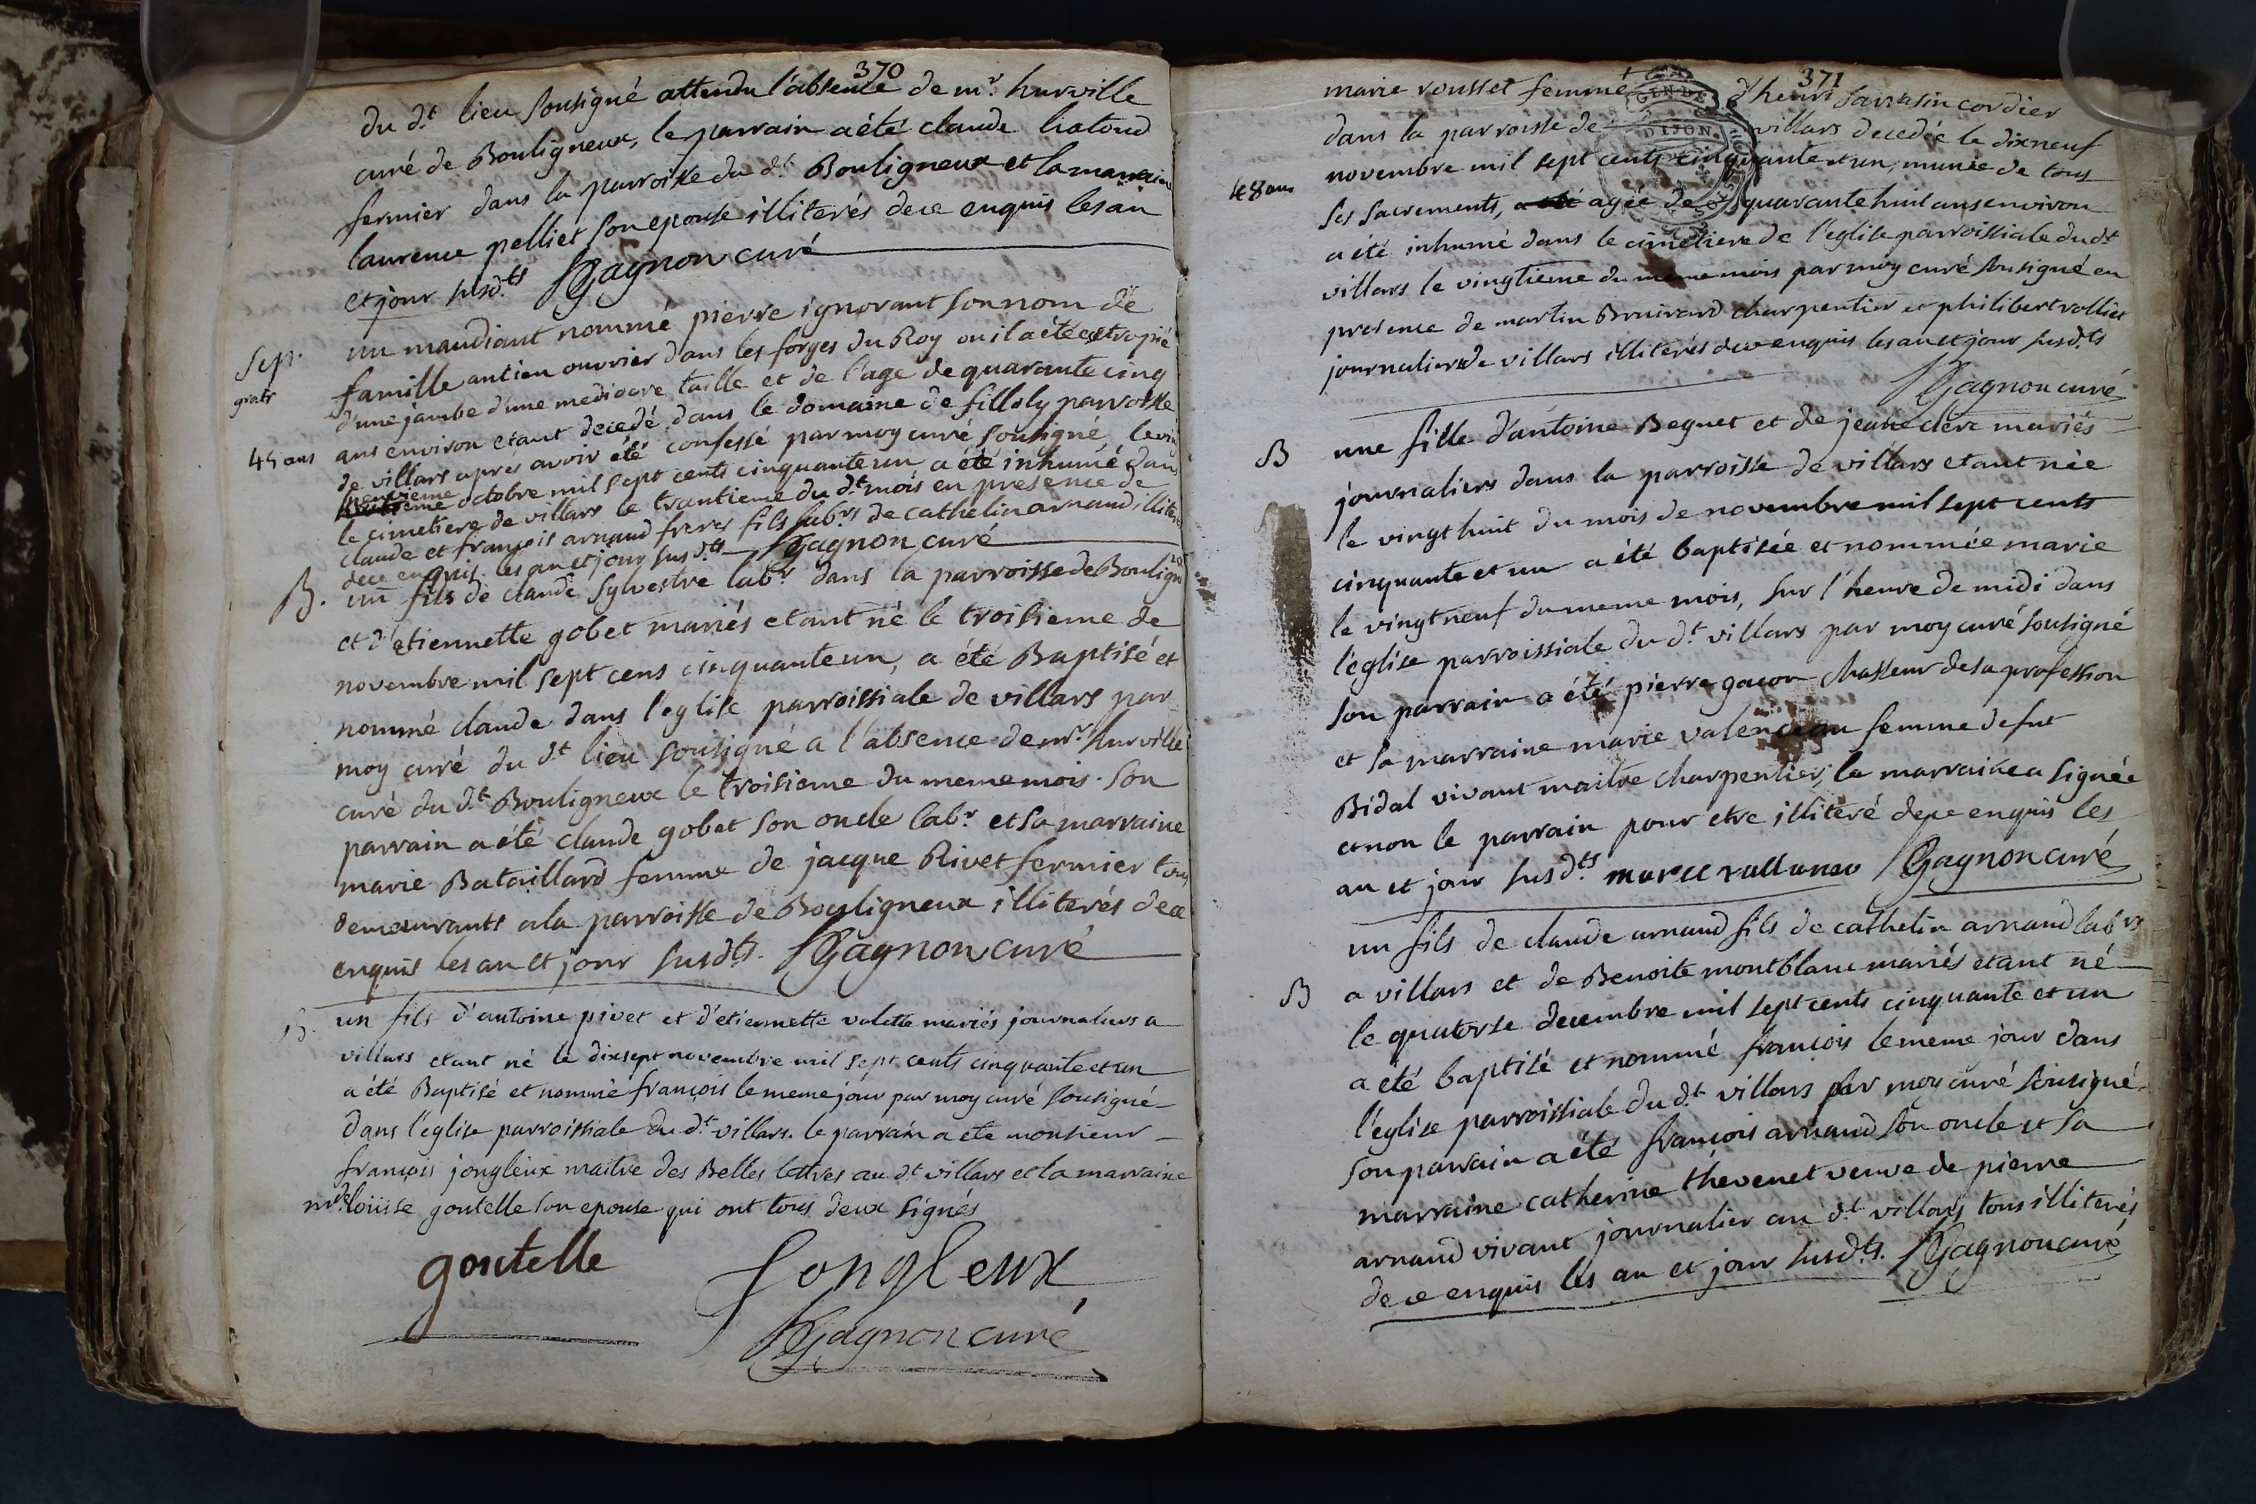 370
du d.t lieu sousigné attendu l'absence de m.r hurville
curé de Bouligneux, le parrain a été claude
fermier dans la parroisse du d.t Bouligneux et la marraine
laurence pelliet son epouse illiterés de ce enquis les an
et jour susd.ts Gagnon curé
Sep.
gratis
45 ans
un mandiant nommé pierre ignorant son nom de
famille antien ouvrier dans les forges du Roy ou il a été estropié
d'une jambe d'une mediocre taille et de l'age de quarante cinq
ans environ etant decedé dans le domaine de filloly parroisse
de villars aprés avoir été confessé par moy curé sousigné, le vingt
neuvieme octobre mil sept cents cinquante un a été inhumé dans
le cimetiere de villars le trantieme du d.t mois en presence de
claude et françois arnaud freres fils lab.rs de cathelin arnaud, illiterés
de ce enquis les an et jour susd.ts Gagnon curé
B.
un fils de claude sylvestre lab.r dans la parroisse de Bouligneux
et d'etiennette gobet mariés etant né le troisieme de
novembre mil sept cens cinquante un, a été Baptisé et
nommé claude dans l'eglise parroissiale de villars par
moy curé du d.t lieu sousigné a l'absence de m.r hurville
curé du d.t Bouligneux le troisieme du meme mois. son
parrain a été claude gobet son oncle lab.r et sa marraine
marie Bataillard femme de jacque Rivet fermier tous
demeurants a la parroisse de Bouligneux illiterés de ce
enquis les an et jour susd.ts. Gagnon curé
B.
un fils d'antoine pivet et d'etiennette valette mariés journaliers a
villars etant né le dixsept novembre mil sept cents cinquante et un
a été Baptisé et nommé françois le meme jour par moy curé sousigné
dans l'église parroissiale du d.t villars. le parrain a ete monsieur
françois jongleux maitre des Belles lettres au d.t villars et la marraine
m.de louise goutelle son epouse qui ont tous deux signés
goutelle
Jongleux
Gagnon curé
371
marie rousset femme d'henri sarrasin cordier
dans la parroisse de villars decedée le dixneuf
novembre mil sept cents cinquante et un, munie de tous
48 ans
ses sacrements, a été agée de quarante huit ans environ
a été inhumé dans le cimetiere de l'eglise parroissiale du d.t
villars le vingtieme du meme mois par moy curé sousigné en
presence de martin Bruirard charpentier et philibert rolliet
journalier de villars illiterés de ce enquis les an et jour susd.ts
Gagnon curé
B
une fille d'antoine Beguet et de jeanne clerc mariés
journaliers dans la parroisse de villars etant née
le vingt huit du mois de novembre mil sept cents
cinquante et un a été baptisée et nommée marie
le vingt neuf du meme mois, sur l'heure de midi dans
l'église parroissiale du d.t villars par moy curé sousigné
son parrain a été pierre gacon chasseur de sa profession
et sa marraine marie valenceau femme de fut
Bidal vivant maitre charpentier, la marraine a signée
et non le parrain pour etre illiteré de ce enquis les
an et jour susd.ts Gagnon curé
B
un fils de claude arnaud fils de cathelin arnaud lab.rs
a villars et de Benoite montblanc mariés etant né
le quatorse decembre mil sept cents cinquante et un
a été baptisé et nommé françois le meme jour dans
l'église parroissiale du d.t villars par moy curé sousigné
son parrain a été françois arnaud son oncle et sa
marraine catherine thevenet veuve de pierre
arnaud vivant journalier au d.t villars tous illiterés
de ce enquis les an et jour susd.ts. Gagnon curé